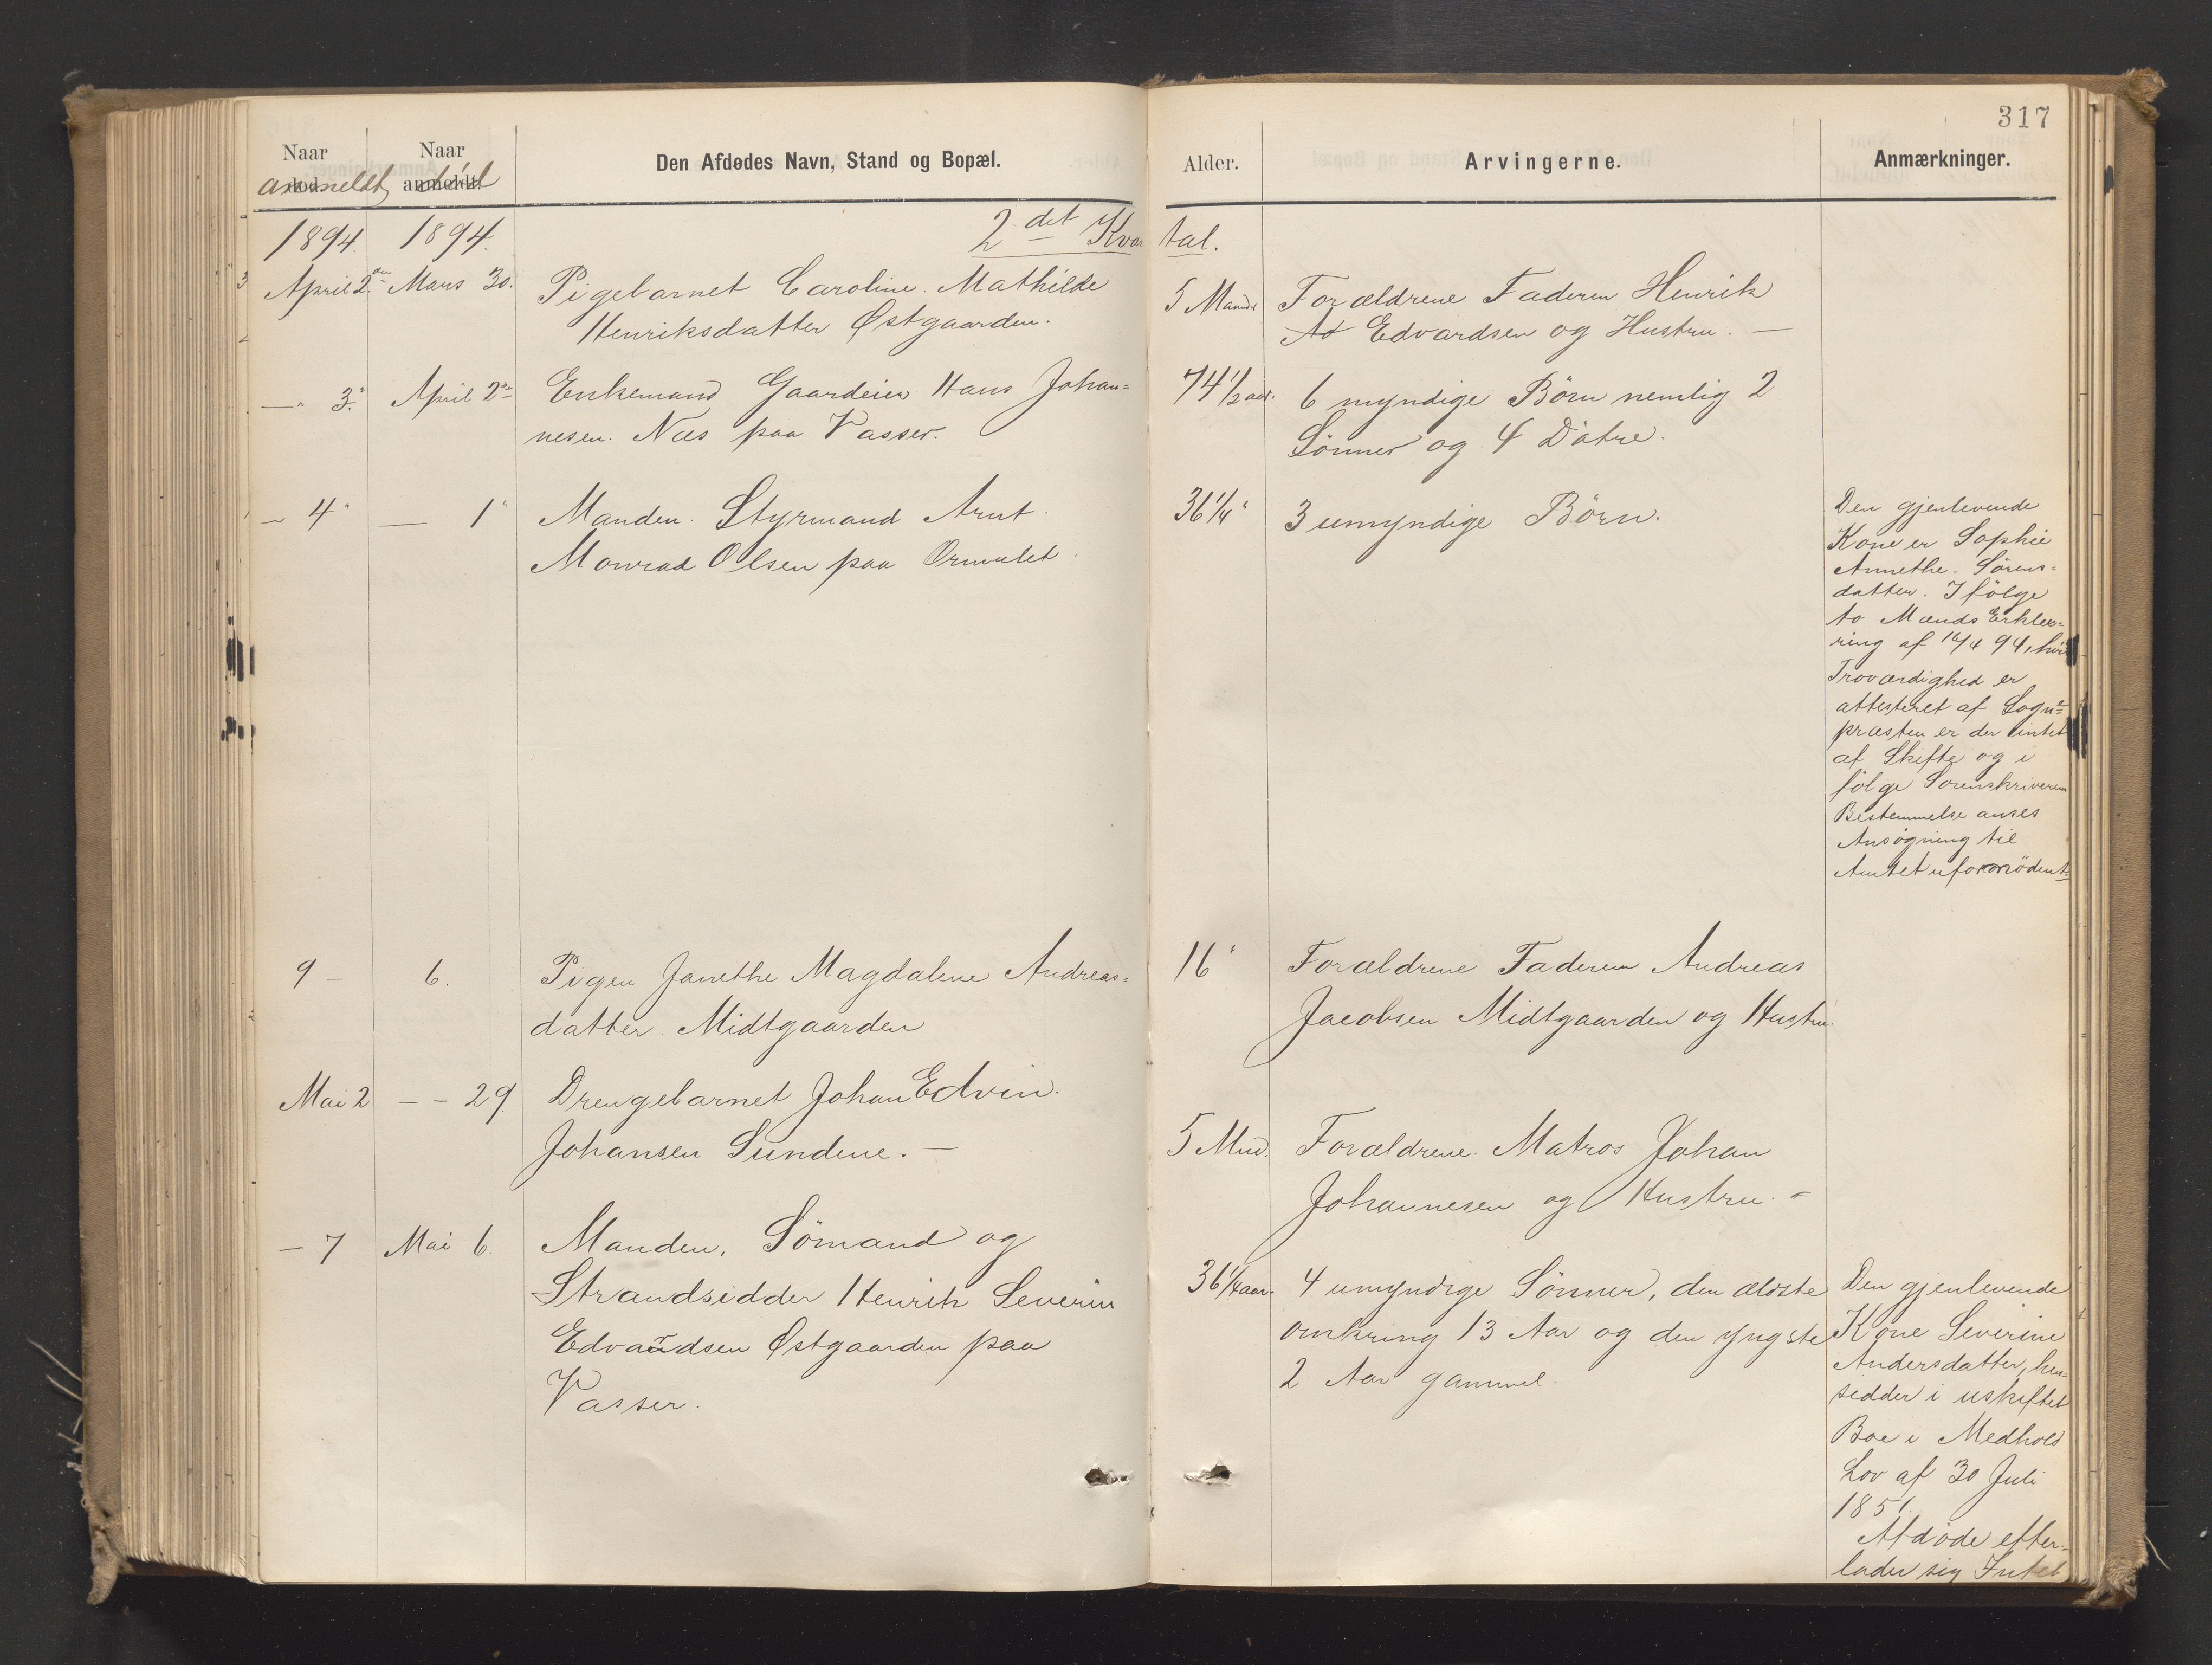 317
Naar
død.
anmeldt,
Naar
anmeldt.
død
Den Afdødes Navn, Stand og Bopæl.
Alder.
Arvingerne.
Anmærkninger.
1894. 1894.
2det Kvar tal.
April 2den Mars 30.
Pigebarnet Caroline Mathilde
Henriksdatter Østgaarden.
5 Maaneder
Forældrene Faderen Henrik
Edvardsen og Hustru. —
— 3. April 2den
Enkemand Gaardeier Hans Johan=
nesen Næs paa Vasser.
74 1/2 aar.
6 myndige Børn nemlig 2
Sønner og 4 Døtre.
— 4" — 1"
Manden Styrmand Arnt
Monrad Olsen paa Ormelet.
36 1/4 "
3 umyndige Børn.
Den gjenlevende
Kone er Sophie
Annethe Sørens=
datter. Ifølge
to Mænds Erklæ=
ring af 16/4 94, hvis
Troværdighed er
attesteret af Sogne=
præsten er der intet
at Skifte og i
følge Sorenskriverens
Bestemmelse anses
Ansøgning til
Amtet ufornødent.
9 — 6.
Pigen Janethe Magdalene Andreas=
datter Midtgaarden
16 "
Forældrene Faderen Andreas
Jacobsen Midtgaarden og Hustru.
Mai 2 — — 29
Drengebarnet Johan Edvin
Johansen Sundene. —
5 Mnd.
Forældrene Matros Johan
Johannesen og Hustru. —
— 7 Mai 6.
Manden, Sømand og
Strandsidder Henrik Severin
Edvardsen Østgaarden paa
Vasser.
36 1/4 aar.
4 umyndige Sønner, den ældste
omkring 13 Aar og den yngste
2 Aar gammel.
Den gjenlevende
Kone Severine
Andersdatter, hen=
sidder i uskiftet
Boe i Medhold
Lov af 30 Juli
1851.
Afdøde efter=
lader sig Intet